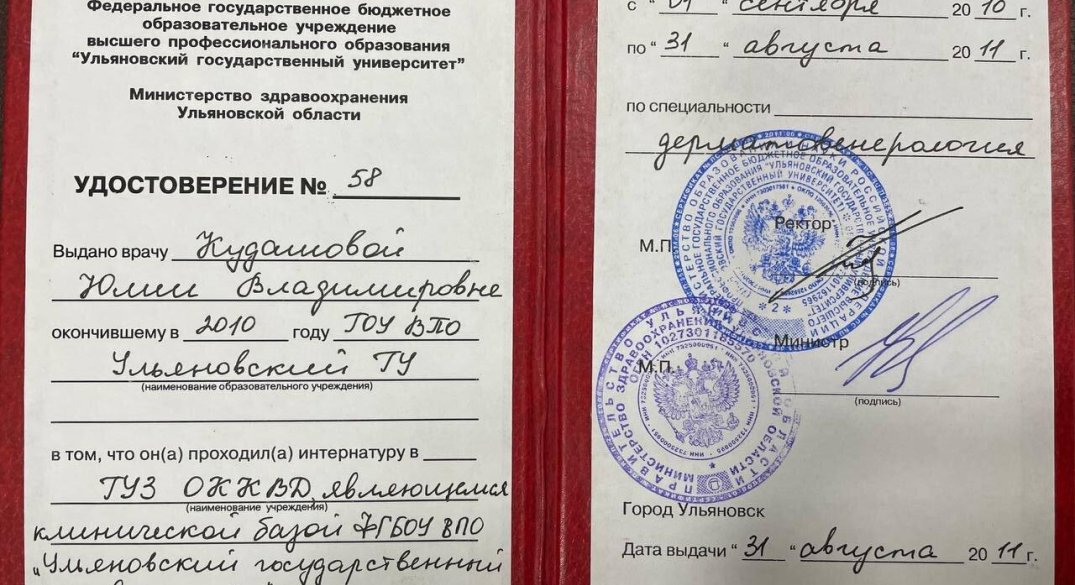 Федеральное государственное бюджетное
образовательное учреждение
высшего профессионального образования
"Ульяновский государственный университет"
Министерство здравоохранения
Ульяновской области
УДОСТОВЕРЕНИЕ № 58
Выдано врачу Кудашовой
Юлии Владимировне
окончившему в 2010 году ГОУ ВПО
Ульяновский ГУ
(наименование образовательного учреждения)
в том, что он(а) проходил(а) интернатуру в
ГУЗ ОККВД, являющемся
(наименование учреждения)
клинической базой ФГБОУ ВПО
"Ульяновский государственный
с "01" сентября 2010 г.
по "31" августа 2011 г.
по специальности
дерматовенерология
Ректор
М.П.
(подпись)
Министр
М.П.
(подпись)
Город Ульяновск
Дата выдачи "31" августа 2011 г.